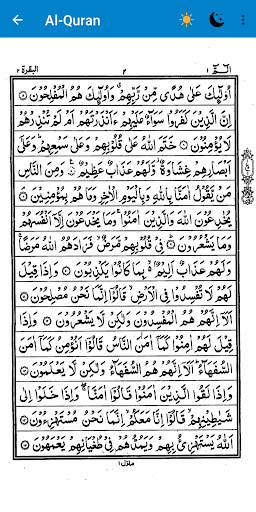 Al-Quran
البقرة ٢
٣
الٓمّٓ ١
اُولٰٓئِكَ عَلٰى هُدًى مِّنْ رَّبِّهِمْ ۗ وَاُولٰٓئِكَ هُمُ الْمُفْلِحُوْنَ ۝
اِنَّ الَّذِيْنَ كَفَرُوْا سَوَآءٌ عَلَيْهِمْ ءَاَنْذَرْتَهُمْ اَمْ لَمْ تُنْذِرْهُمْ
لَا يُؤْمِنُوْنَ ۝ خَتَمَ اللّٰهُ عَلٰى قُلُوْبِهِمْ وَعَلٰى سَمْعِهِمْ ؕ وَعَلٰٓى
اَبْصَارِهِمْ غِشَاوَةٌ ؗ وَّلَهُمْ عَذَابٌ عَظِيْمٌ ۝ وَمِنَ النَّاسِ
مَنْ يَّقُوْلُ اٰمَنَّا بِاللّٰهِ وَبِالْيَوْمِ الْاٰخِرِ وَمَا هُمْ بِمُؤْمِنِيْنَ ۝
يُخٰدِعُوْنَ اللّٰهَ وَالَّذِيْنَ اٰمَنُوْا ۚ وَمَا يَخْدَعُوْنَ اِلَّآ اَنْفُسَهُمْ
وَمَا يَشْعُرُوْنَ ۝ فِيْ قُلُوْبِهِمْ مَّرَضٌ ۙ فَزَادَهُمُ اللّٰهُ مَرَضًا ۚ
وَلَهُمْ عَذَابٌ اَلِيْمٌۢ ۙ بِمَا كَانُوْا يَكْذِبُوْنَ ۝ وَاِذَا قِيْلَ
لَهُمْ لَا تُفْسِدُوْا فِى الْاَرْضِ ۙ قَالُوْٓا اِنَّمَا نَحْنُ مُصْلِحُوْنَ ۝
اَلَآ اِنَّهُمْ هُمُ الْمُفْسِدُوْنَ وَلٰكِنْ لَّا يَشْعُرُوْنَ ۝ وَاِذَا
قِيْلَ لَهُمْ اٰمِنُوْا كَمَآ اٰمَنَ النَّاسُ قَالُوْٓا اَنُؤْمِنُ كَمَآ اٰمَنَ
السُّفَهَآءُ ؕ اَلَآ اِنَّهُمْ هُمُ السُّفَهَآءُ وَلٰكِنْ لَّا يَعْلَمُوْنَ ۝
وَاِذَا لَقُوا الَّذِيْنَ اٰمَنُوْا قَالُوْٓا اٰمَنَّا ۖ وَاِذَا خَلَوْا اِلٰى
شَيٰطِيْنِهِمْ ۙ قَالُوْٓا اِنَّا مَعَكُمْ ۙ اِنَّمَا نَحْنُ مُسْتَهْزِءُوْنَ ۝
اَللّٰهُ يَسْتَهْزِئُ بِهِمْ وَيَمُدُّهُمْ فِيْ طُغْيَانِهِمْ يَعْمَهُوْنَ ۝
منزل ١